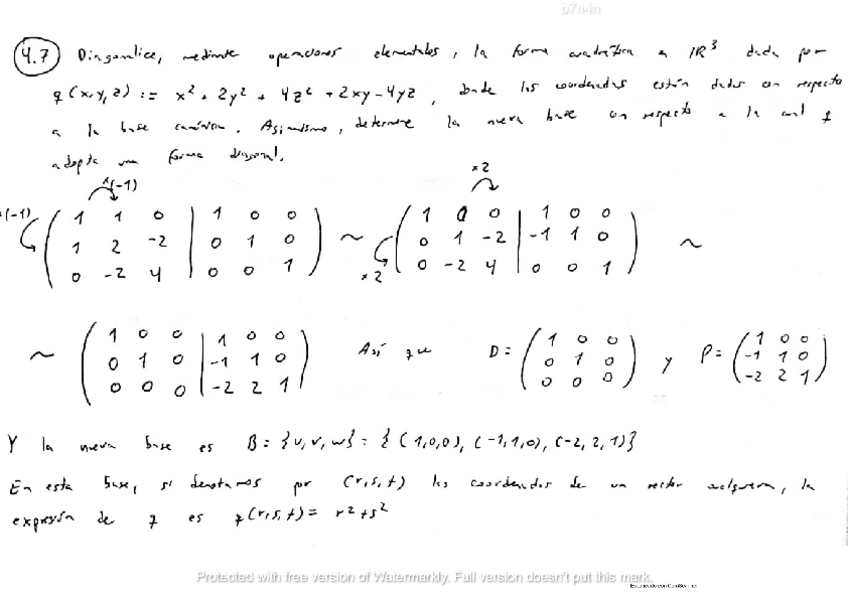 b7n4n
4.7 Diagonalice, mediante operaciones elementales, la forma cuadrática en IR³ dada por
q(x,y,z) := x² + 2y² + 4z² + 2xy - 4yz, donde las coordenadas están dadas con respecto
a la base canónica. Asimismo, determine la nueva base con respecto a la cual q
adopta una forma diagonal.
x(-1) x2
x(-1) ( 1 1 0 | 1 0 0 ) ~ ( 1 0 0 | 1 0 0 ) ~
( 1 2 -2 | 0 1 0 ) ( 0 1 -2 | -1 1 0 )
( 0 -2 4 | 0 0 1 ) x2 ( 0 -2 4 | 0 0 1 )
~ ( 1 0 0 | 1 0 0 ) Así que D = ( 1 0 0 ) y P = ( 1 0 0 )
( 0 1 0 | -1 1 0 ) ( 0 1 0 ) ( -1 1 0 )
( 0 0 0 | -2 2 1 ) ( 0 0 0 ) ( -2 2 1 )
Y la nueva base es B = {u, v, w} = { (1,0,0), (-1,1,0), (-2,2,1)}
En esta base, si denotamos por (r,s,t) las coordenadas de un vector cualquiera, la
expresión de q es q(r,s,t) = r² + s²
Protected with free version of Watermarkly. Full version doesn't put this mark.
Escaneado con CamScanner